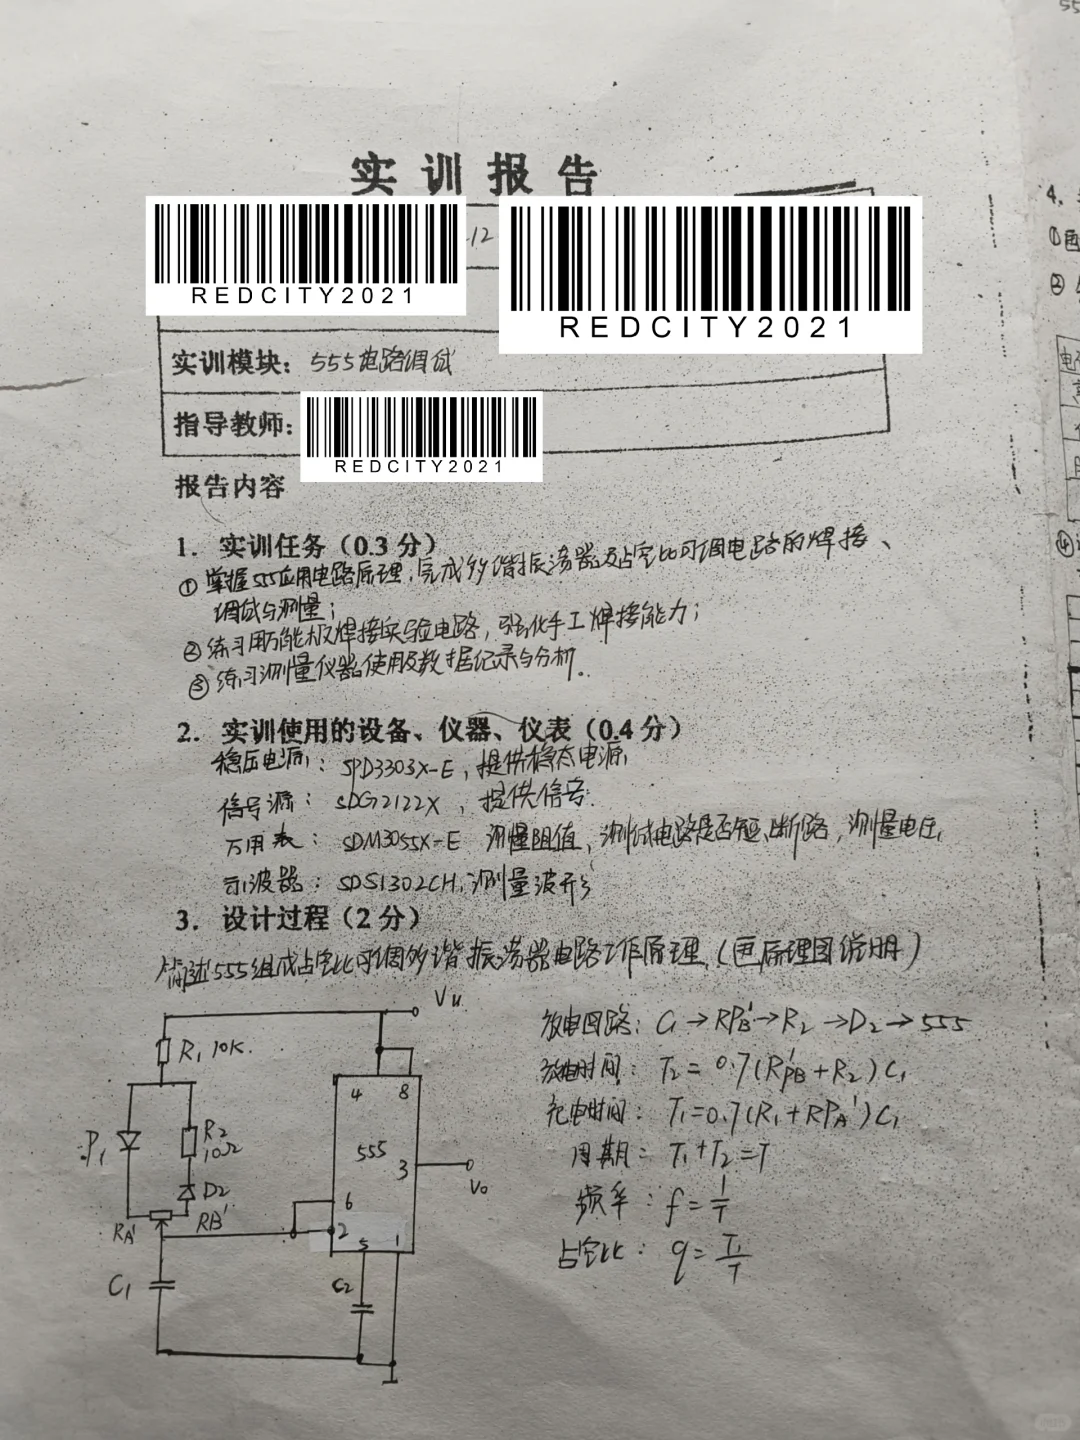 实训报告
REDCITY2021
-12
REDCITY2021
实训模块：555电路调试
指导教师：
REDCITY2021
报告内容
1. 实训任务（0.3分）
① 掌握555应用电路原理，完成多谐振荡器及占空比可调电路的焊接、
调试与测量；
② 练习用万能板焊接实验电路，强化手工焊接能力；
③ 练习测量仪器使用及数据记录与分析。
2. 实训使用的设备、仪器、仪表（0.4分）
稳压电源：SPD3303X-E，提供稳态电源
信号源：SDG2122X，提供信号
万用表：SDM3055X-E 测量阻值，测试电路是否短、断路，测量电压
示波器：SDS1302CH，测量波形
3. 设计过程（2分）
简述555组成占空比可调多谐振荡器电路工作原理（画原理图说明）
放电回路：C1→RPB'→R2→D2→555
放电时间：T2=0.7(RPB'+R2)C1
充电时间：T1=0.7(R1+RPA')C1
周期：T1+T2=T
频率：f=1/T
占空比：q=T1/T
R1 10K
P1
R2
10Ω
D2
RA'
RB'
C1
4
8
555
3
6
2
5
1
C2
Vo
4.
①画
②
④